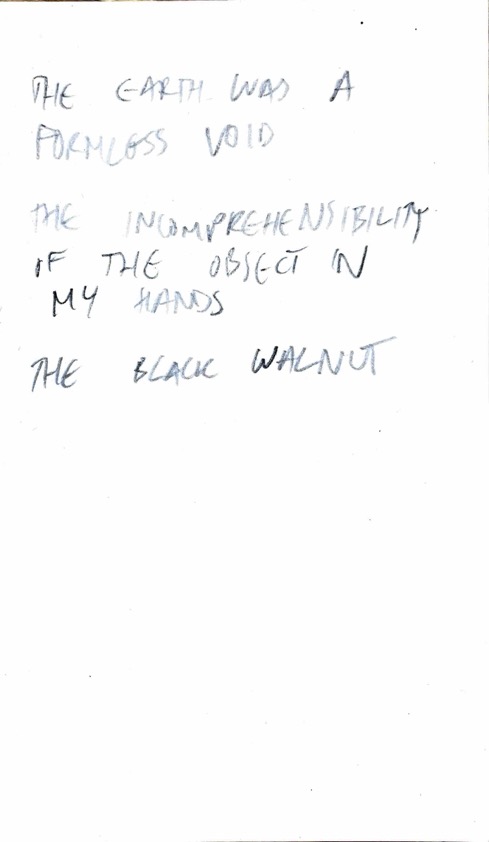 THE EARTH WAS A
FORMLESS VOID
THE INCOMPREHENSIBILITY
OF THE OBJECT IN
MY HANDS
THE BLACK WALNUT